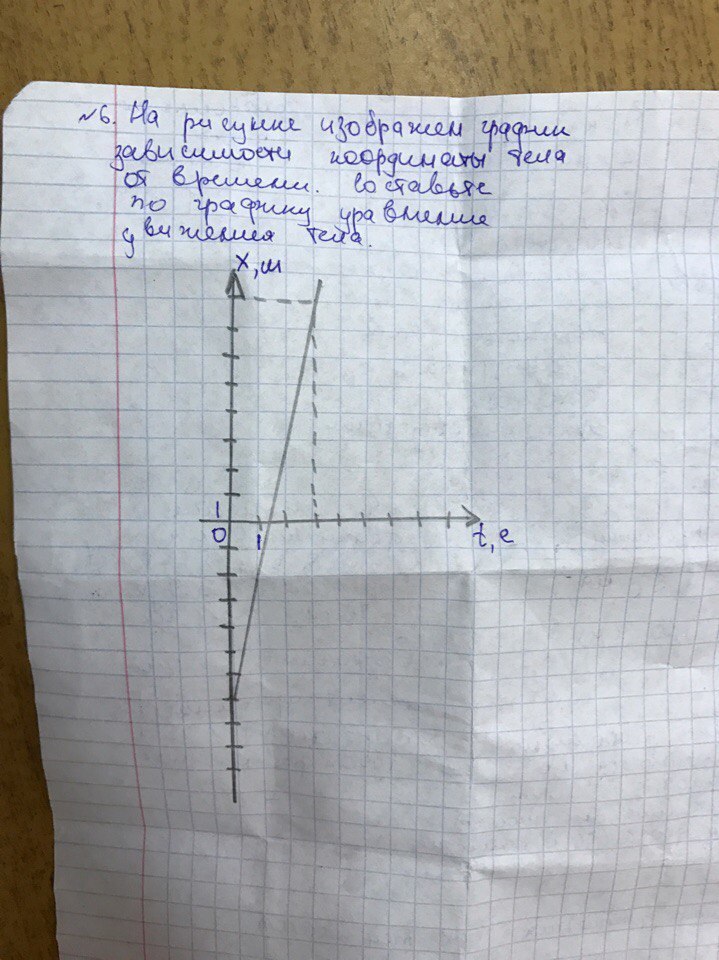 №6. На рисунке изображен график
зависимости координаты тела
от времени. Составьте
по графику уравнение
движения тела.
x, м
1
0
1
t, с